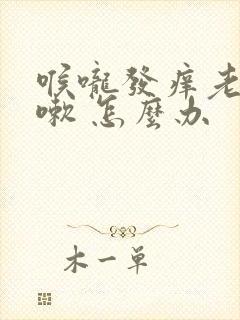 喉嚨發痒老
嗽 怎麼办
木一单